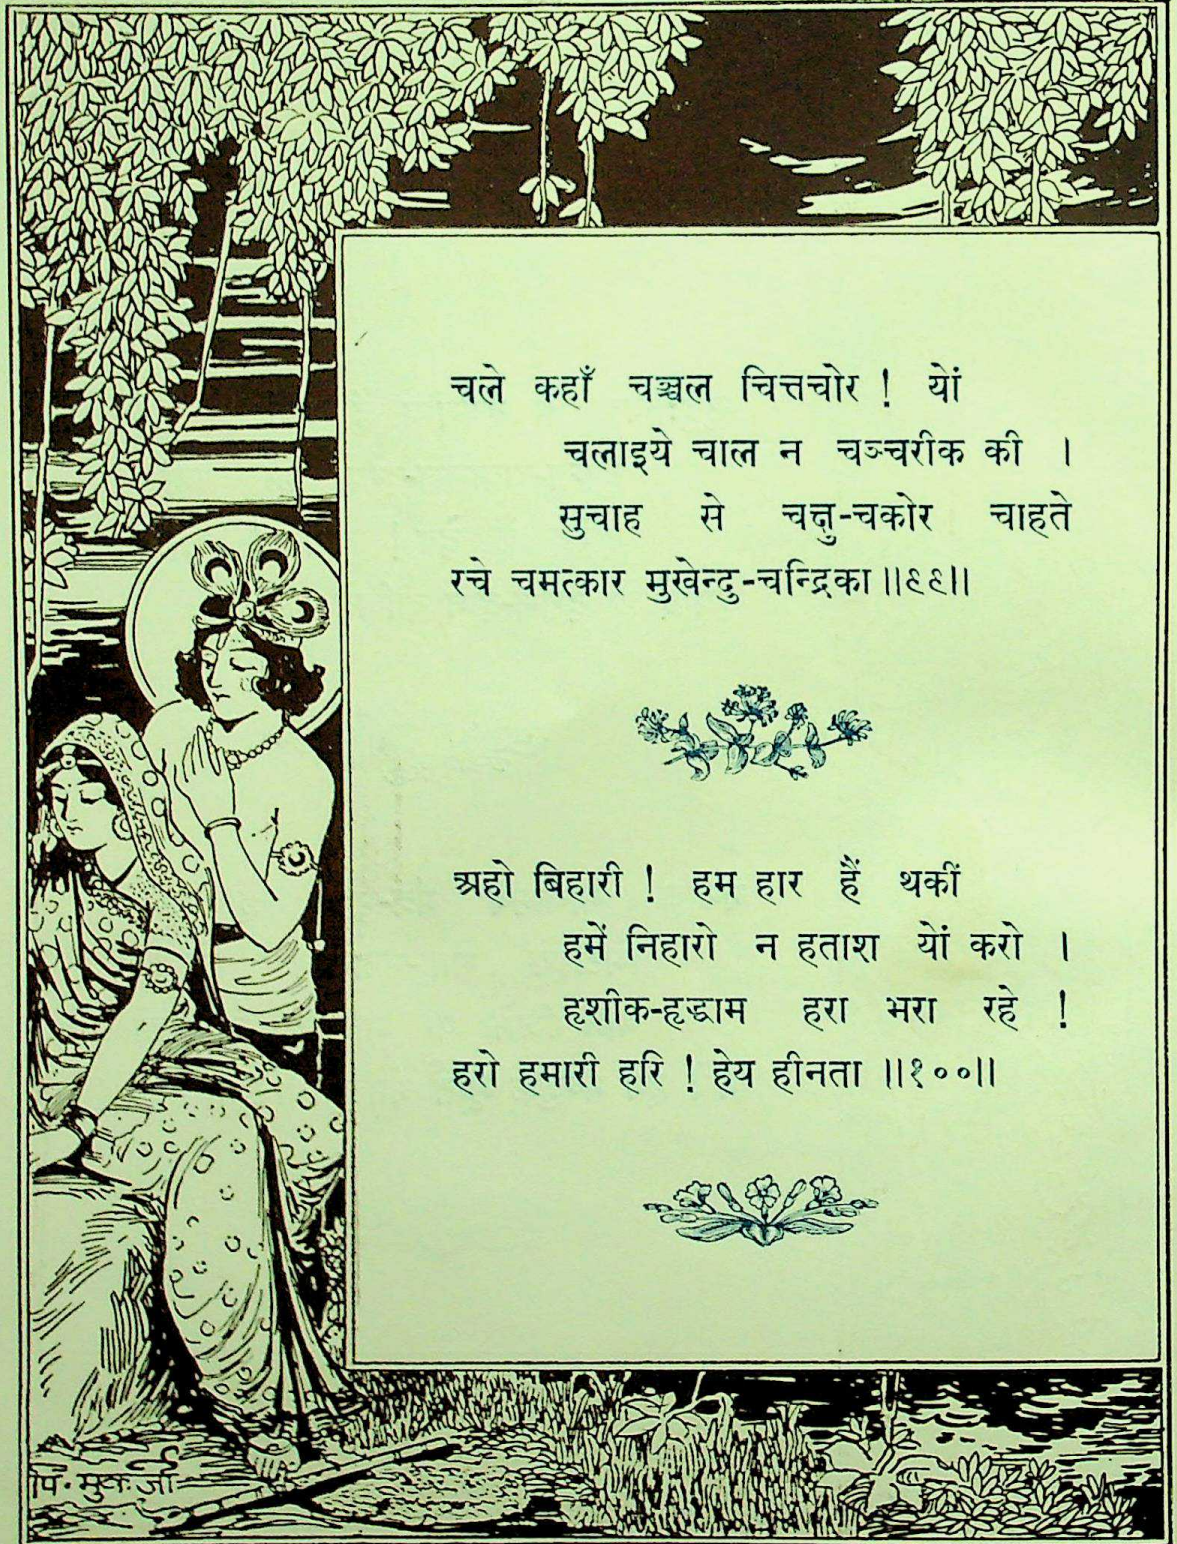 चले कहाँ चञ्चल चित्तचोर ! येां
चलाइये चाल न चञ्चरीक की ।
सुचाह से चक्षु-चकोर चाहते
रचे चमत्कार मुखेन्दु-चन्द्रिका ॥९९॥
अहो बिहारी ! हम हार हैं थकीं
हमें निहारो न हताश येां करो ।
हृशीक-हृद्धाम हरा भरा रहे !
हरो हमारी हरि ! हेय हीनता ॥१००॥
पि॰मुकर्जी